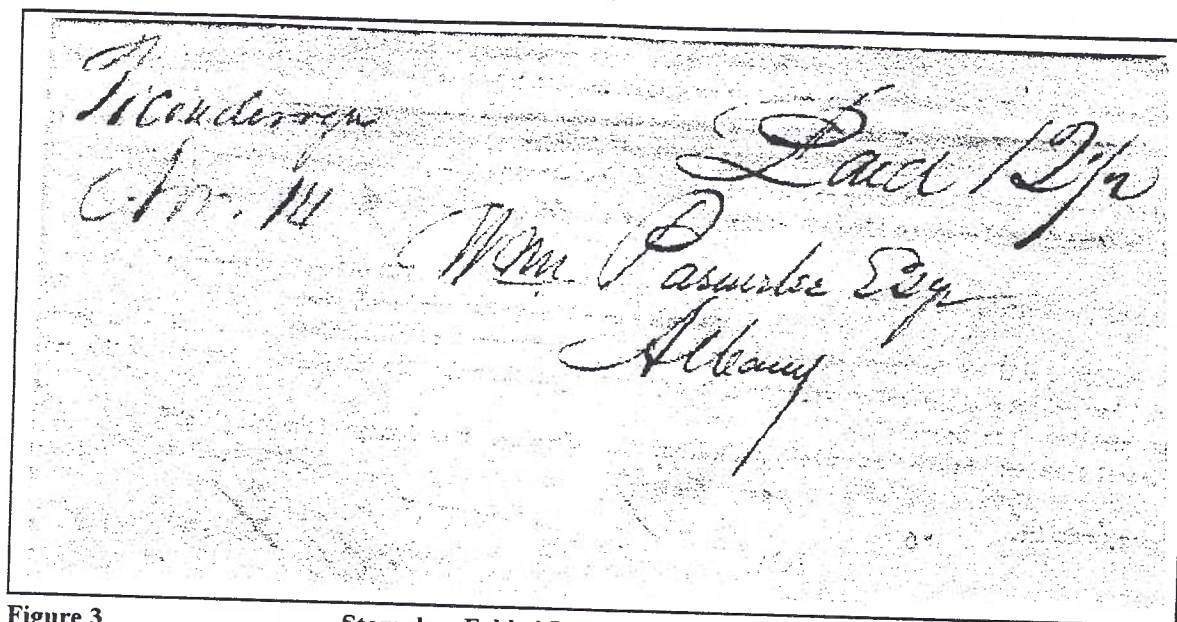 Ticonderoga
Paid 12½
14
Wm Parmelee Esqr
Albany
Figure 3